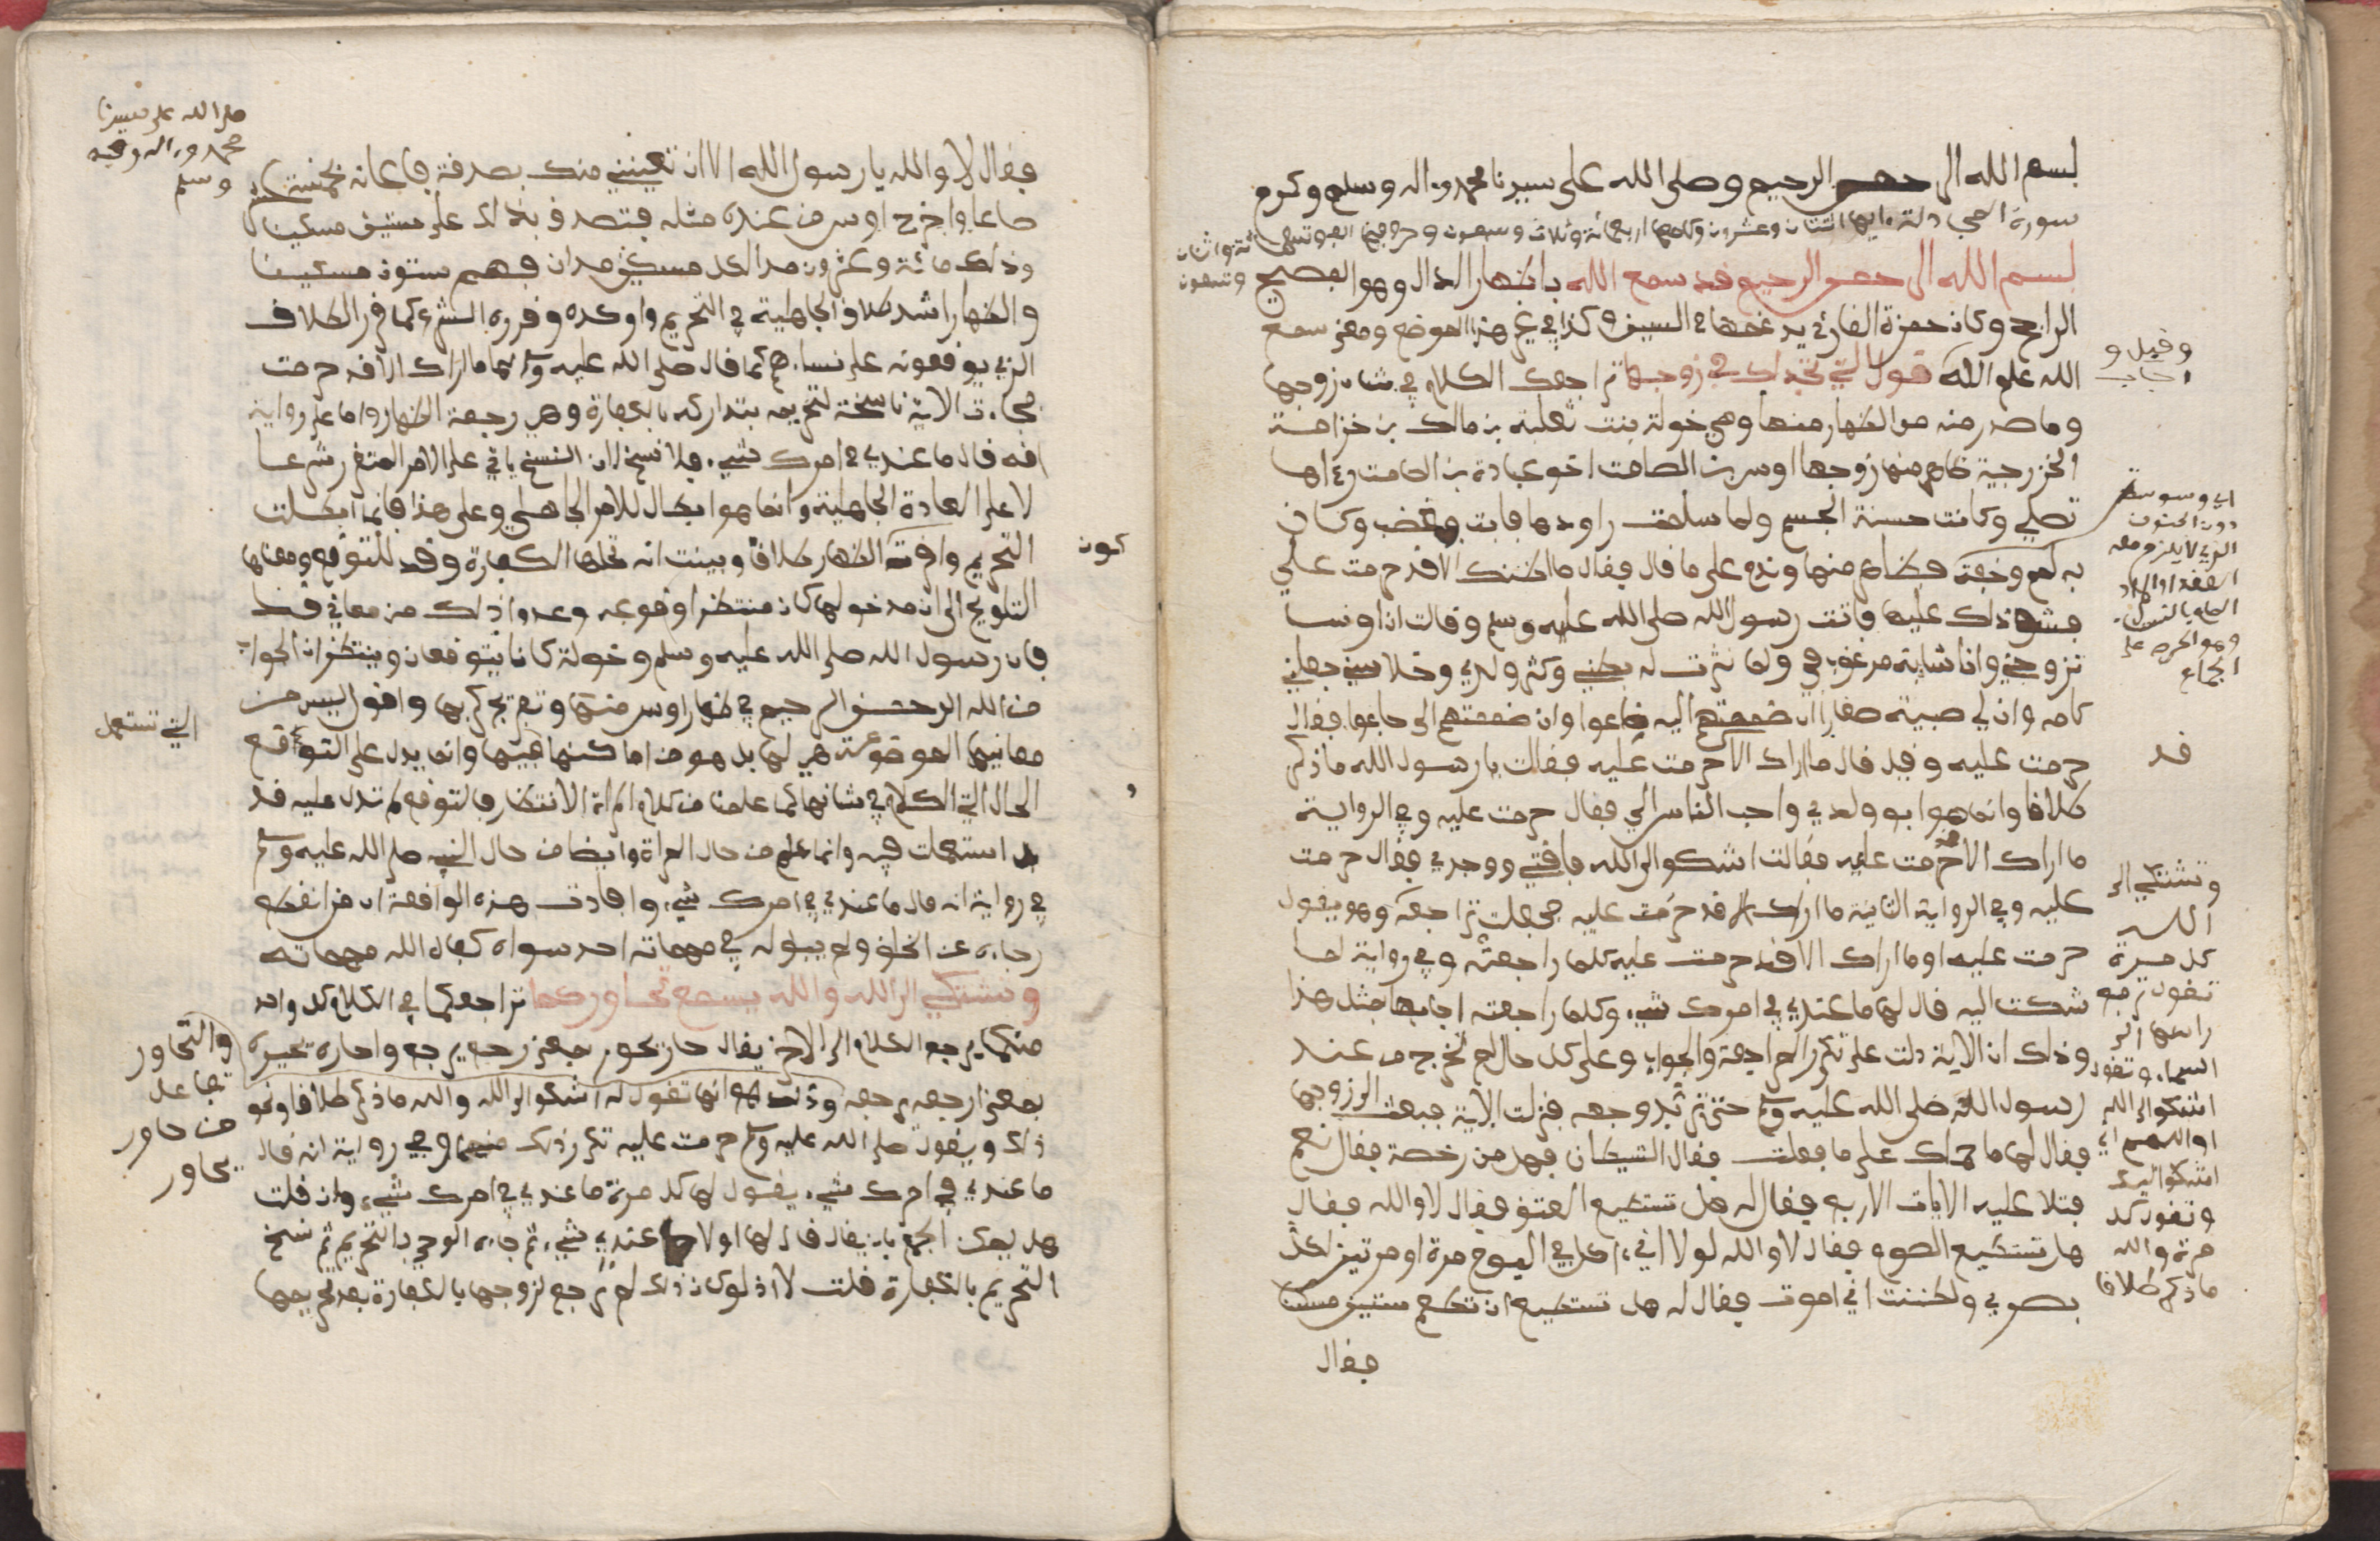 بسم الله الرحمن الرحيم وصلى الله على سيدنا محمد وءاله وسلم وكرم
سورة المجادلة ءايها اثنتان وعشرون وكلمها اربعمائة وثلاث وسبعون وحروفها الف وتسعمائة واثنان وتسعون
بسم الله الرحمن الرحيم قد سمع الله باظهار الدال وهو الفصيح
الراجح وكان حمزة القارئ يدغمها في السين وكذا في غير هذا الموضع ومعنى سمع
الله علم الله قول التي تجادلك في زوجها تراجعك الكلام في شان زوجها
وقيل و
اجاب
وما صدر منه من الظهار منها وهي خولة بنت ثعلبة بن مالك بن خزامة
الخزرجية ظاهر منها زوجها اوس بن الصامت اخو عبادة بن الصامت رءاها
تصلي وكانت حسنة الجسم ولما سلمت راودها فابت فغضب وكان
به لمم وخفة فظاهر منها وندم على ما قال فقال ما اظنك الا قد حرمت علي
اي وسوسة
دون الجنون
الذي لا يلزم معه
العقد او المراد
المام بالنساء
وهو الحرص على
الجماع
فشق ذلك عليها فاتت رسول الله صلى الله عليه وسلم وقالت ان اوسا
تزوجني وانا شابة مرغوب في ولما نثرت له بطني وكثر ولدي وخلا سني جعلني
كامه وان لي صبية صغارا ان ضممتهم اليه ضاعوا وان ضممتهم الي جاعوا فقال
حرمت عليه وقيل قال ما اراك الا حرمت عليه فقالت يا رسول الله ما ذكر
قد
طلاقا وانما هو ابو ولدي واحب الناس الي فقال حرمت عليه وفي الرواية
ما اراك الا حرمت عليه فقالت اشكو الى الله فاقتي ووجدي فقال حرمت
عليه وفي الرواية الثانية ما اراك الا قد حرمت عليه فجعلت تراجعه وهو يقول
حرمت عليه او ما اراك الا قد حرمت عليه كلما راجعته وفي رواية لما
شكت اليه قال لها ما عندي في امرك شيء وكلما راجعته اجابها مثل هذا
وذلك ان الاية دلت على تكرر المراجعة والجواب وعلى كل حال لم تخرج من عند
رسول الله صلى الله عليه وسلم حتى تربد وجهه فنزلت الاية فبعث الى زوجها
فقال لها ما حملك على ما فعلت فقال الشيطان فهل من رخصة فقال نعم
فتلا عليه الايات الاربع فقال له هل تستطيع العتق فقال لا والله فقال
هل تستطيع الصوم فقال لا والله لولا اني ءاكل في اليوم مرة او مرتين لكل
بصري ولظننت اني اموت فقال له هل تستطيع ان تطعم ستين مسكينا
وتشتكي الى
الله
كل مرة
تقول ترفع
راسها الى
السماء وتقول
اشكو الى الله
او اللهم اني
اشكو اليك
وتقول كل
مرة والله
ما ذكر طلاقا
فقال
صلى الله على سيدنا
محمد وءاله وصحبه
وسلم
فقال لا والله يا رسول الله الا ان تعينني منك بصدقة فاعانه بخمسة عشر
صاعا واخرج اوس من عنده مثله فتصدق بذلك على ستين مسكينا
وذلك مائة وعشرون مدا لكل مسكين مدان فهم ستون مسكينا
والظهار اشد طلاق الجاهلية في التحريم واوكده وقرره الشرع كما قرر الطلاق
الذي يوقعونه على نساءهم كما قال صلى الله عليه وسلم لها ما اراك الا قد حرمت
فجاءت الاية ناسخة لتحريمه بتداركه بالكفارة وهي رجعة الظهار واما على رواية
انه قال ما عندي في امرك شيء فلا نسخ لان النسخ ياتي على الامر المتقرر شرعا
لا على العادة الجاهلية وانما هو ابطال للامر الجاهلي وعلى هذا فانما ابطلت
التحريم واقرت الظهار طلاقا وبينت انه تحلها الكفارة وقد للتوقع ومعناها
كون
التلويح الى ان مدخولها كان منتظرا وقوعه وعدوا ذلك من معاني قد
فان رسول الله صلى الله عليه وسلم وخولة كانا يتوقعان وينتظران الجواب
من الله الرحمن الرحيم في ظهار اوس منها وتفريج كربها واقول ليس من
معانيها الموضوعة هي لها بل هو من اماكنها التي تستعمل فيها وانما يدل على التوقع
الحال التي الكلام في شانها كما علمنا من كلام المراة الانتظار فالتوقع لم تدل عليه قد
بل استعملت فيه وانما علم من حال المراة وايضا من حال النبي صلى الله عليه وسلم
في رواية انه قال ما عندي في امرك شيء وافادت هذه الواقعة ان من انقطع
رجاءه عن الخلق ولم يبق له في مهماته احد سواه كفاه الله مهماته
وتشتكي الى الله والله يسمع تحاوركما تراجعكما في الكلام كل واحد
منكما يرجع الكلام الى الاخر يقال حار يحور بمعنى رجع يرجع واحاره يحيره
بمعنى ارجعه يرجعه وذلك انها تقول له اشكو الى الله والله ما ذكر طلاقا ونحو
ذلك ويقول صلى الله عليه وسلم حرمت عليه تكرر ذلك منهما وفي رواية انه قال
ما عندي في امرك شيء يقول لها كل مرة ما عندي في امرك شيء وان قلت
هل يمكن الجمع بان يقال قال لها اولا ما عندي شيء ثم جاءه الوحي بالتحريم ثم نسخ
التحريم بالكفارة قلت لا اذ لو كان ذلك لم ترجع لزوجها بالكفارة بعد تحريمها
والتحاور
تفاعل
من حاور
يحاور